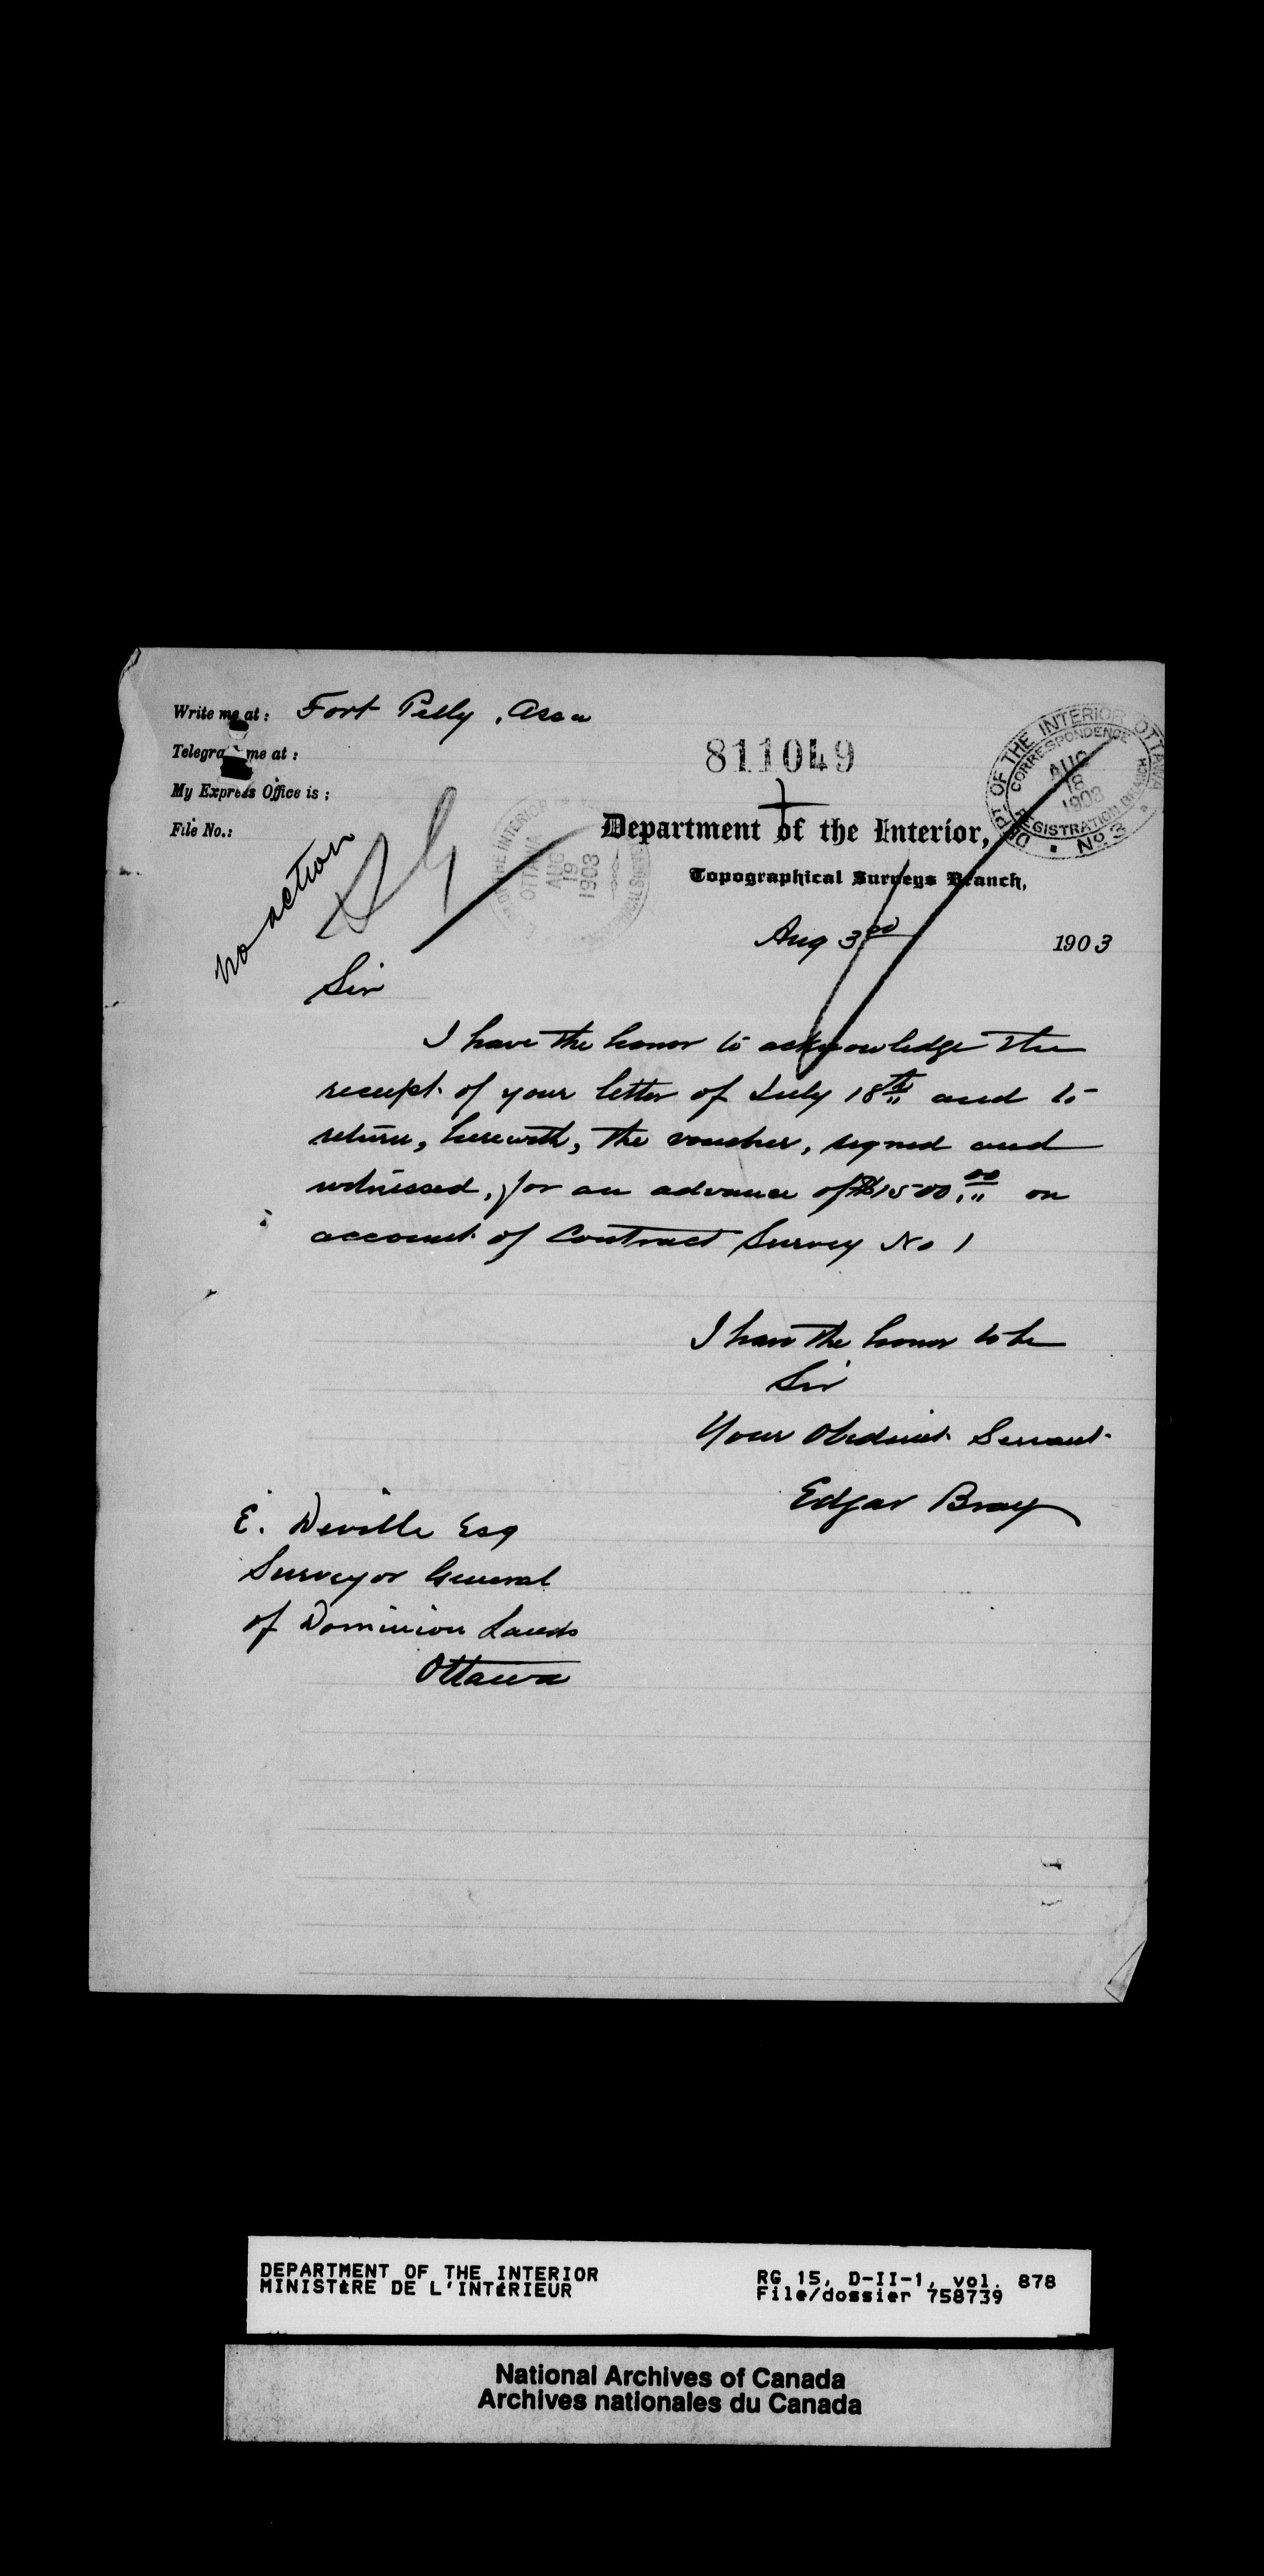 Write me at: Fort Pelly, Assa
Telegraph me at:
My Express Office is:
File No.:
811049
DEPT. OF THE INTERIOR OTTAWA
CORRESPONDENCE
AUG
18
1903
REGISTRATION BRANCH
No 3
OF THE INTERIOR
OTTAWA
AUG
19
1903
no action
Department of the Interior,
Topographical Surveys Branch,
Aug 3rd 1903
Sir
I have the honor to acknowledge the
receipt of your letter of July 18th and to
return, herewith, the voucher, signed and
witnessed, for an advance of $1500.00 on
account of Contract Survey No 1
I have the honor to be
Sir
Your Obedient Servant
Edgar Bray
E. Deville Esq
Surveyor General
of Dominion Lands
Ottawa
DEPARTMENT OF THE INTERIOR
MINISTÈRE DE L'INTÉRIEUR
RG 15, D-II-1, vol. 878
File/dossier 758739
National Archives of Canada
Archives nationales du Canada